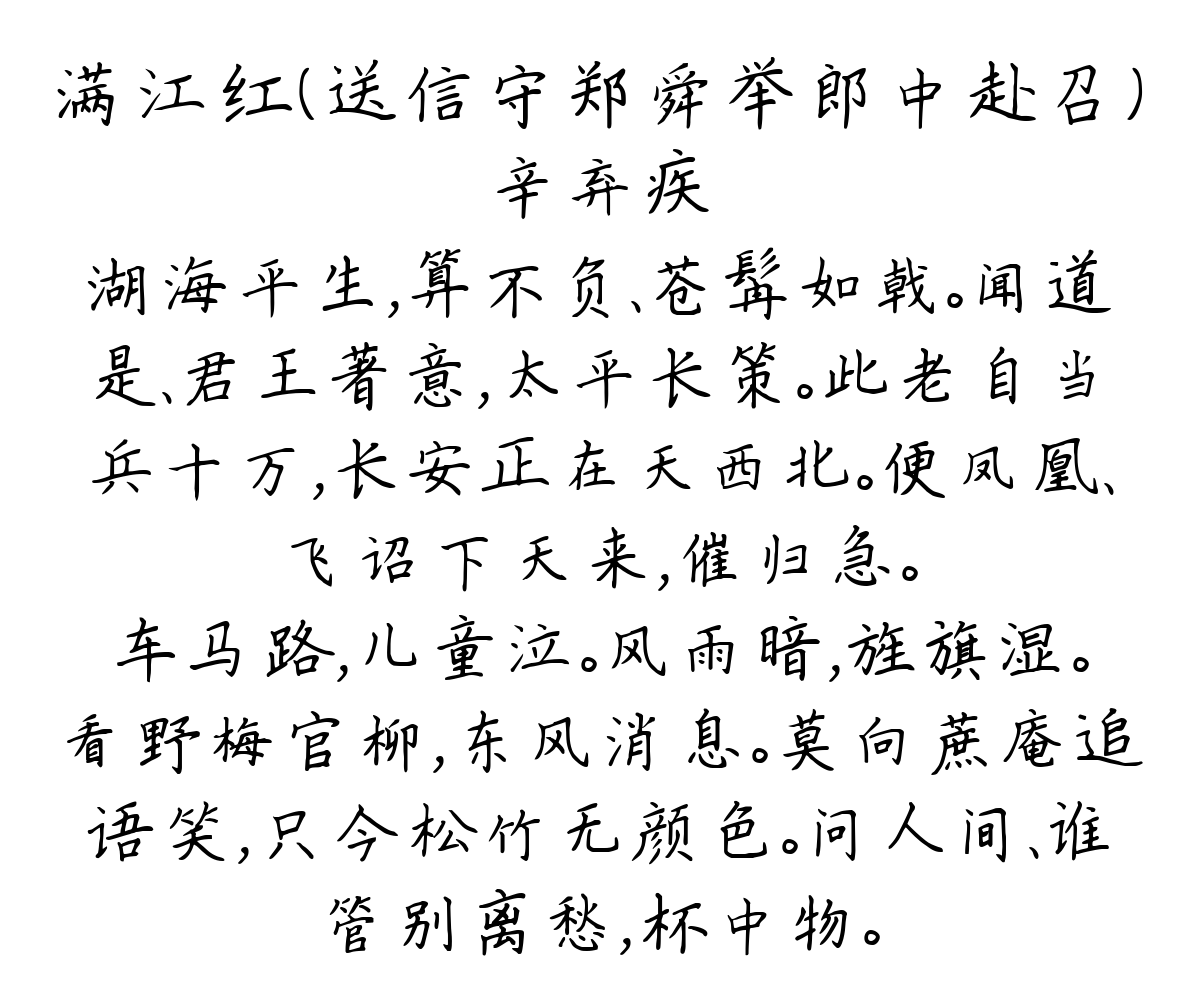 满江红(送信守郑舜举郎中赴召)
辛弃疾
湖海平生,算不负、苍髯如戟。闻道
是、君王著意,太平长策。此老自当
兵十万,长安正在天西北。便凤凰、
飞诏下天来,催归急。
车马路,儿童泣。风雨暗,旌旗湿。
看野梅官柳,东风消息。莫向蔗庵追
语笑,只今松竹无颜色。问人间、谁
管别离愁,杯中物。